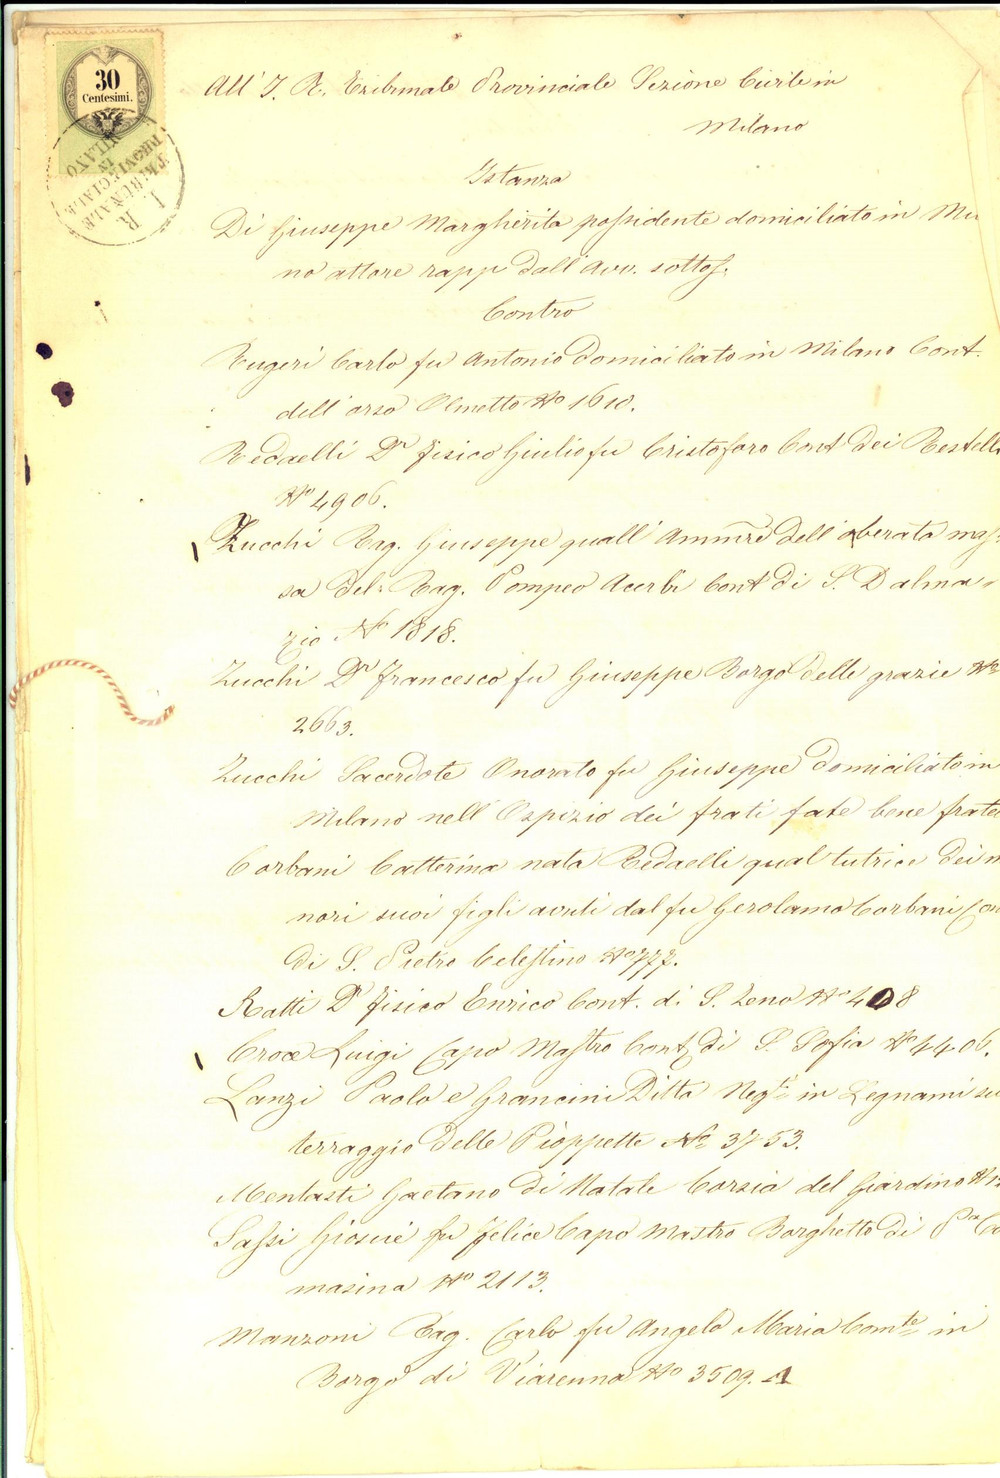 30
Centesimi.
I. R.
TRIBUNALE
PROVINCIALE
IN
MILANO
All' I. R. Tribunale Provinciale Sezione Civile in
Milano
Istanza
Di Giuseppe Margherita possidente domiciliato in Mila
no attore rapp dall' Avv. sottos.
Contro
Rugeri Carlo fu Antonio domiciliato in Milano Cont.
dell' orso Olmetto No 1610.
Redaelli Dr fisico Giulio fu Cristoforo Contr dei Restelli
No 4906.
Zucchi Rag. Giuseppe quall' Ammre dell' oberata mas=
sa del Rag. Pompeo Acerbi Cont di S. Dalma=
zio No 1818.
Zucchi Dr Francesco fu Giuseppe Borgo delle grazie No
2663.
Zucchi Sacerdote Onorato fu Giuseppe domiciliato in
Milano nell' Ospizio dei frati fate bene frate
Corbani Catterina nata Redaelli qual tutrice dei m
nori suoi figli avuti dal fu Gerolamo Corbani Con
di S. Pietro Celestino No 777.
Ratti Dr fisico Enrico Cont. di S. Zeno No 408
Croce Luigi Capo Mastro Cont di S. Sofia No 4406.
Lanzi Paolo e Grancini Ditta Negti in Legnami su
terraggio delle Pioppette No 3753.
Mentasti Gaetano di Natale Corsia del Giardino No
Sassi Giosuè fu Felice Capo Mastro Borghetto di Pta Co
masina No 2113.
Manzoni Rag. Carlo fu Angelo Maria Comte in
Borgo di Viarenna No 3509. A